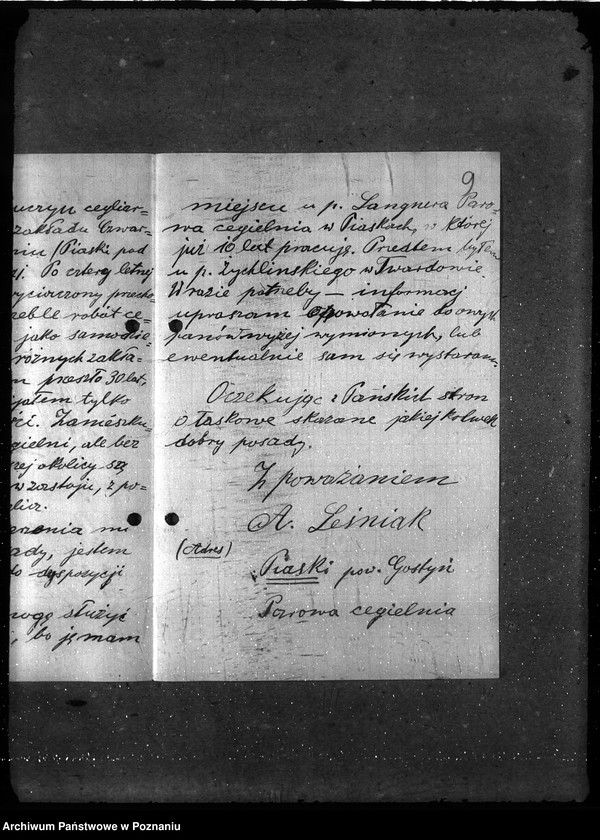 9
uczyn cegliar=
zakładu Czwar=
niu (Piaski pod
Po cztery letnej
wyciwiczony przedo
robót ce=
jako samodzie
różnych zakła=
przeszło 30 lat,
jąłem tylko
ści. Zamészku=
gielni, ale bez
szej okolicy są
w zastoju, z po=
licz.
mi
ady, jestem
do dyspozycji
mogę służyć
, bo ją mam
miejscu u p. Langnera Paro=
wa cegielnia w Piaskach, w której
już 10 lat pracuję. Przedtem byłem
u p. Żychlinskiego w Twardowie.
W razie potrzeby — informacj
upraszam powołanie do owych
panów wyżej wymionych, lub
ewentualnie sam się wystaram.
Oczekując z Pańskich stron
o łaskowe skazane jakiej kolwiek
dobry posady.
Z poważaniem
A. Leśniak
(Adres)
Piaski pow. Gostyń
Parowa cegielnia
Archiwum Państwowe w Poznaniu